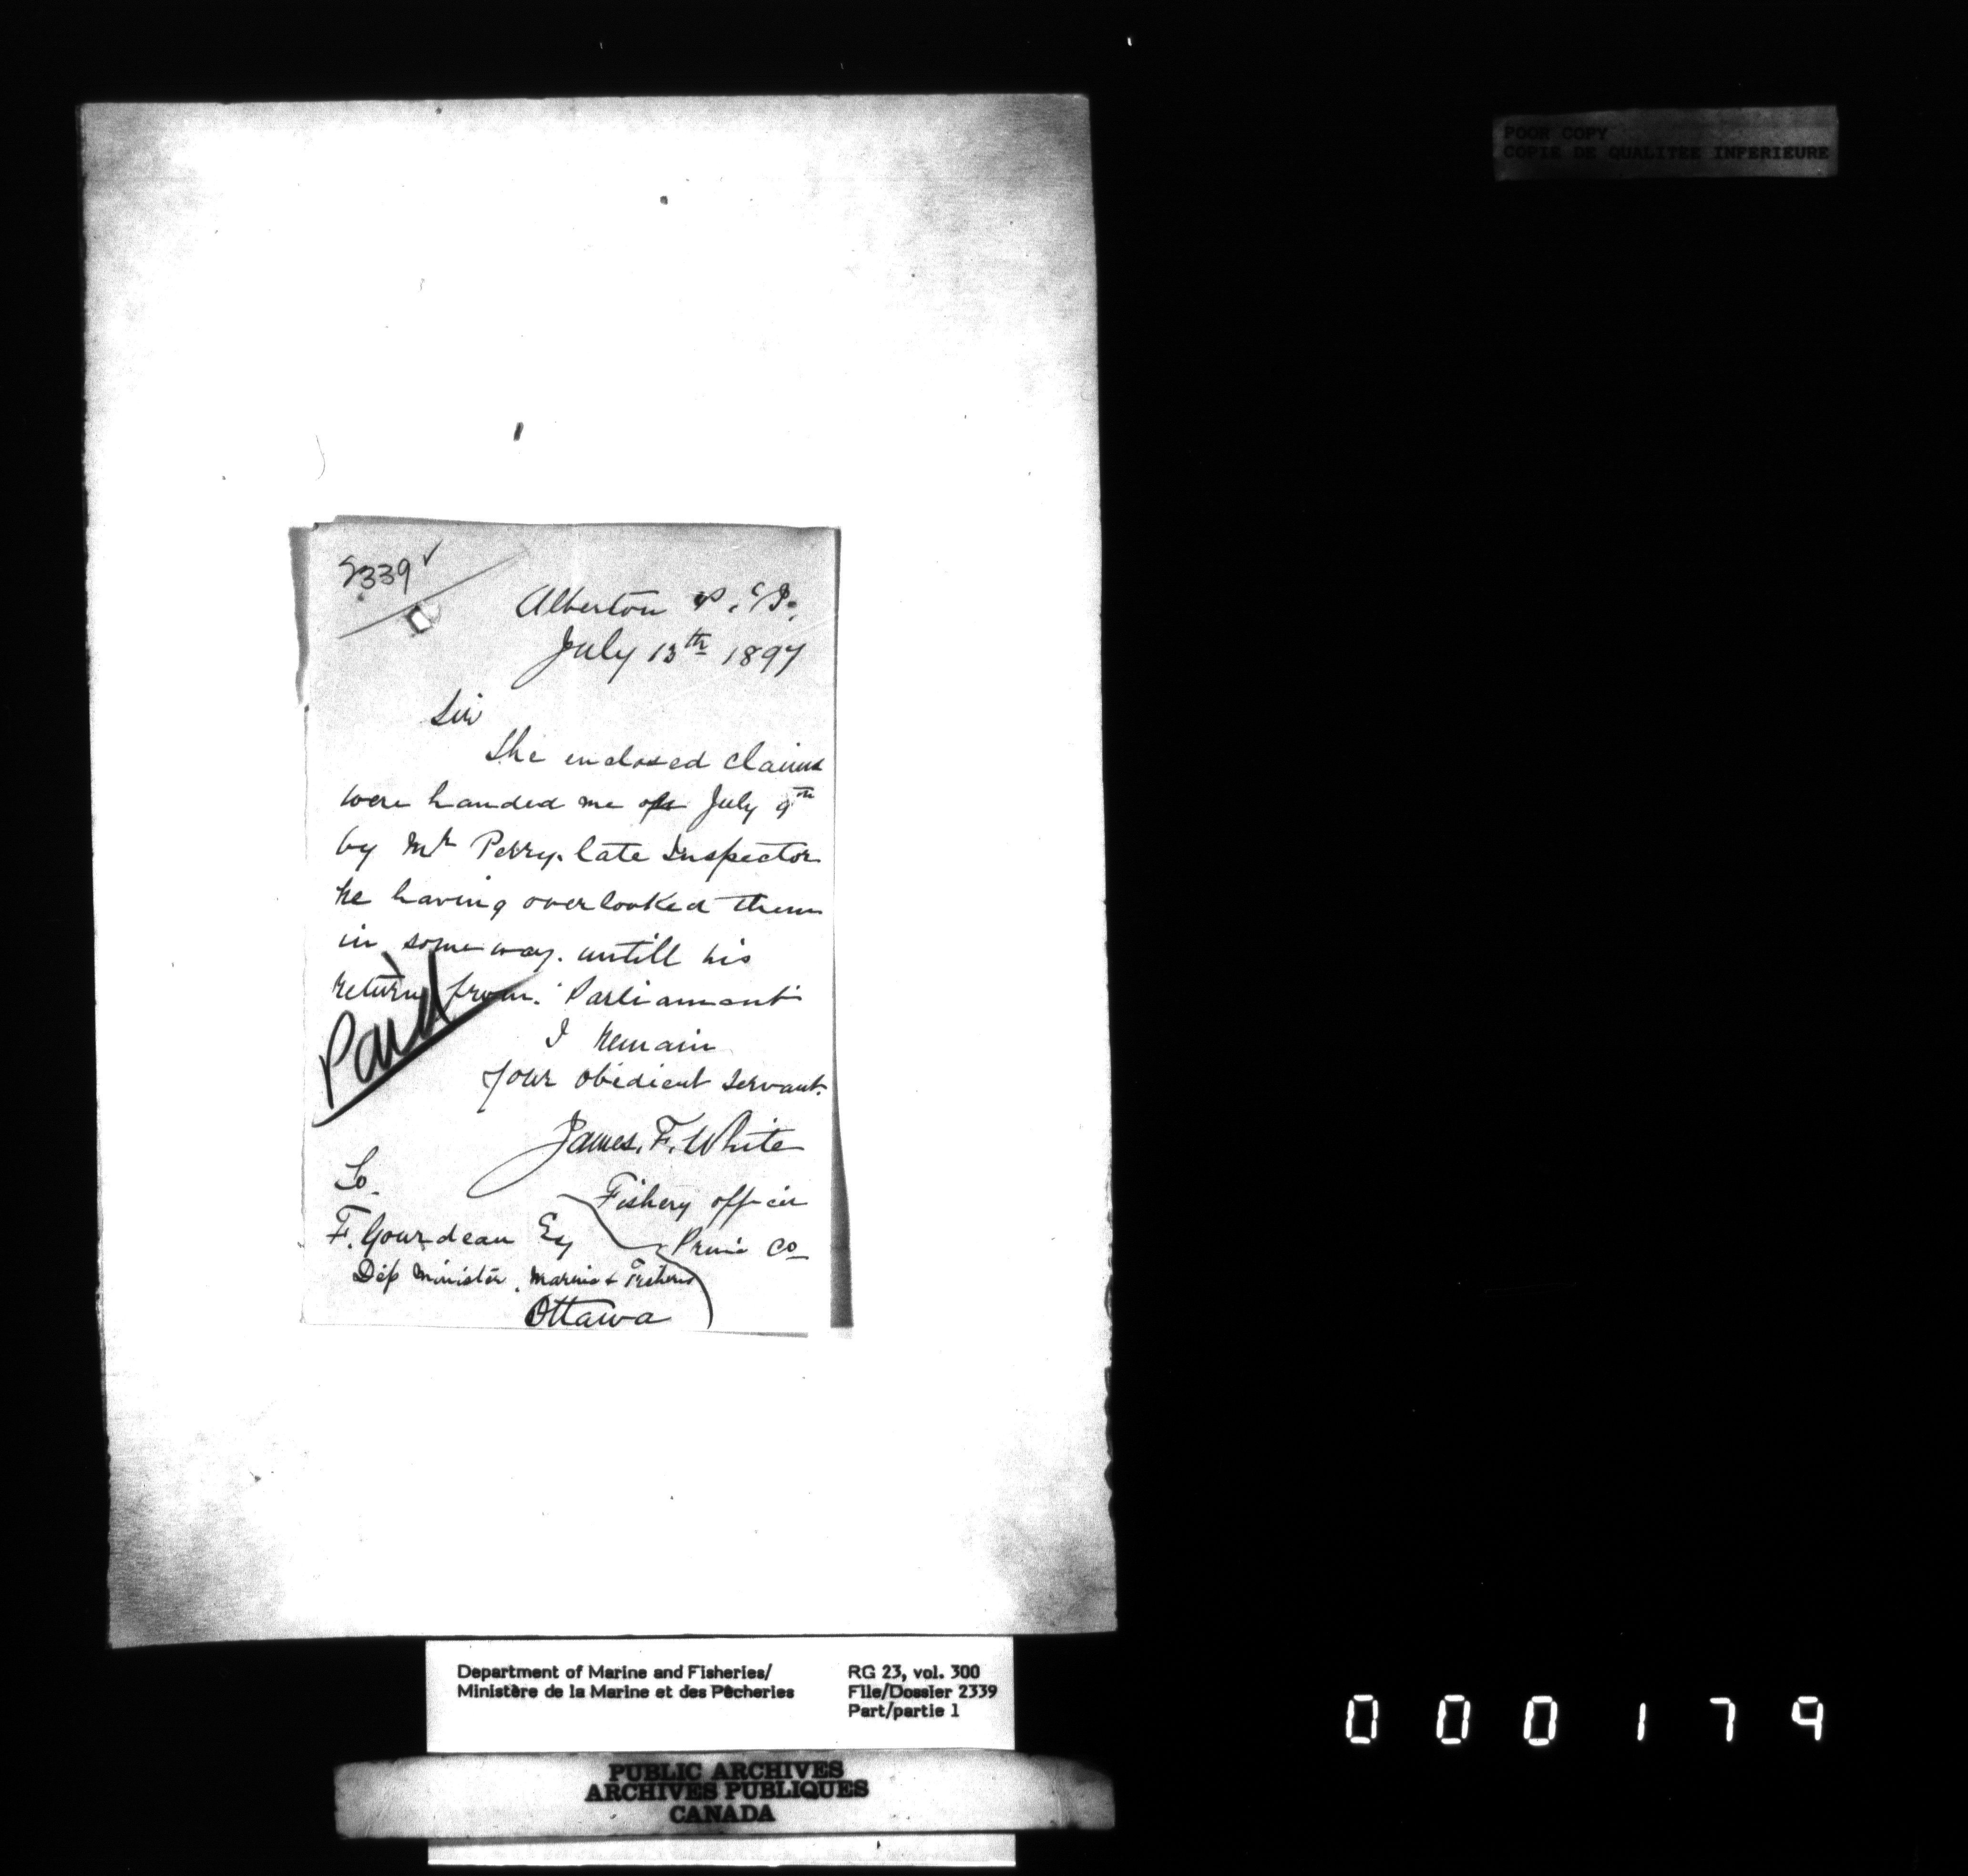 POOR COPY
COPIE DE QUALITEE INFERIEURE
2339 ✓
Alberton P.E.I.
July 13th 1897
Sir
The enclosed claims
were handed me July 9th
by Mr Perry. late Inspector
he having overlooked them
in some way. untill his
return from. Parliament
Paid
I remain
your obedient servant.
James. F. White
Fishery officer
Prince Co
To.
F. Gourdeau Esq
Dep Minister. Marine & Fisheries
Ottawa
Department of Marine and Fisheries/
Ministère de la Marine et des Pêcheries
RG 23, vol. 300
File/Dossier 2339
Part/partie 1
PUBLIC ARCHIVES
ARCHIVES PUBLIQUES
CANADA
000179